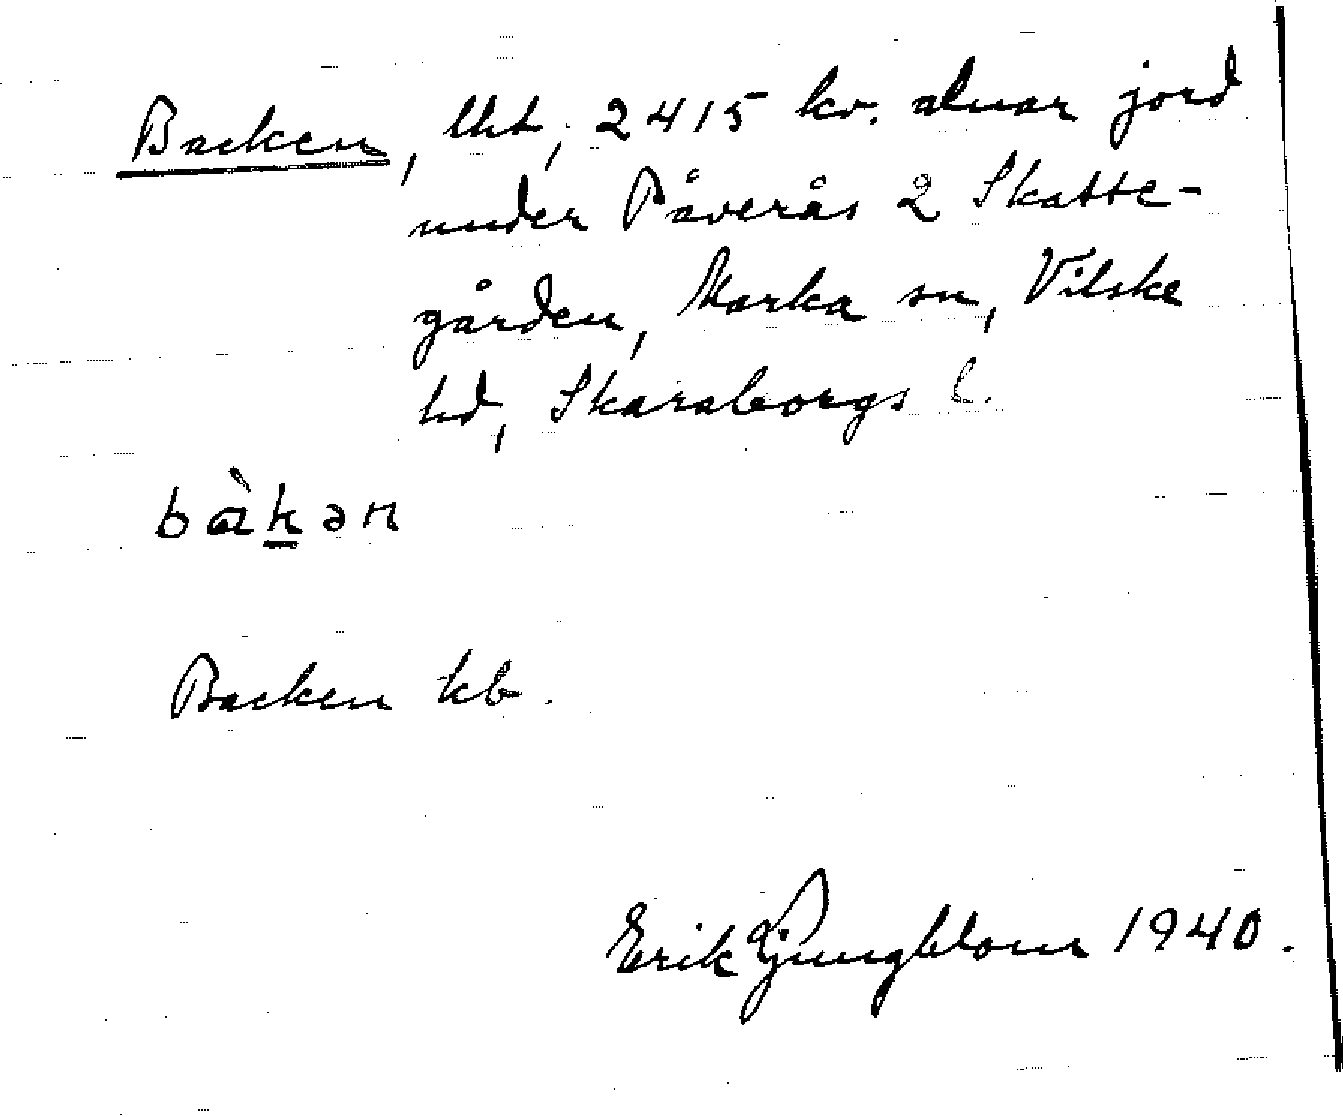 Backen, lht, 2415 kv. alnar jord
under Påverås 2 Skatte-
gården, Marka sn, Vilske
hd, Skaraborgs l.
bàkən
Backen kb.
Erik Ljungblom 1940.